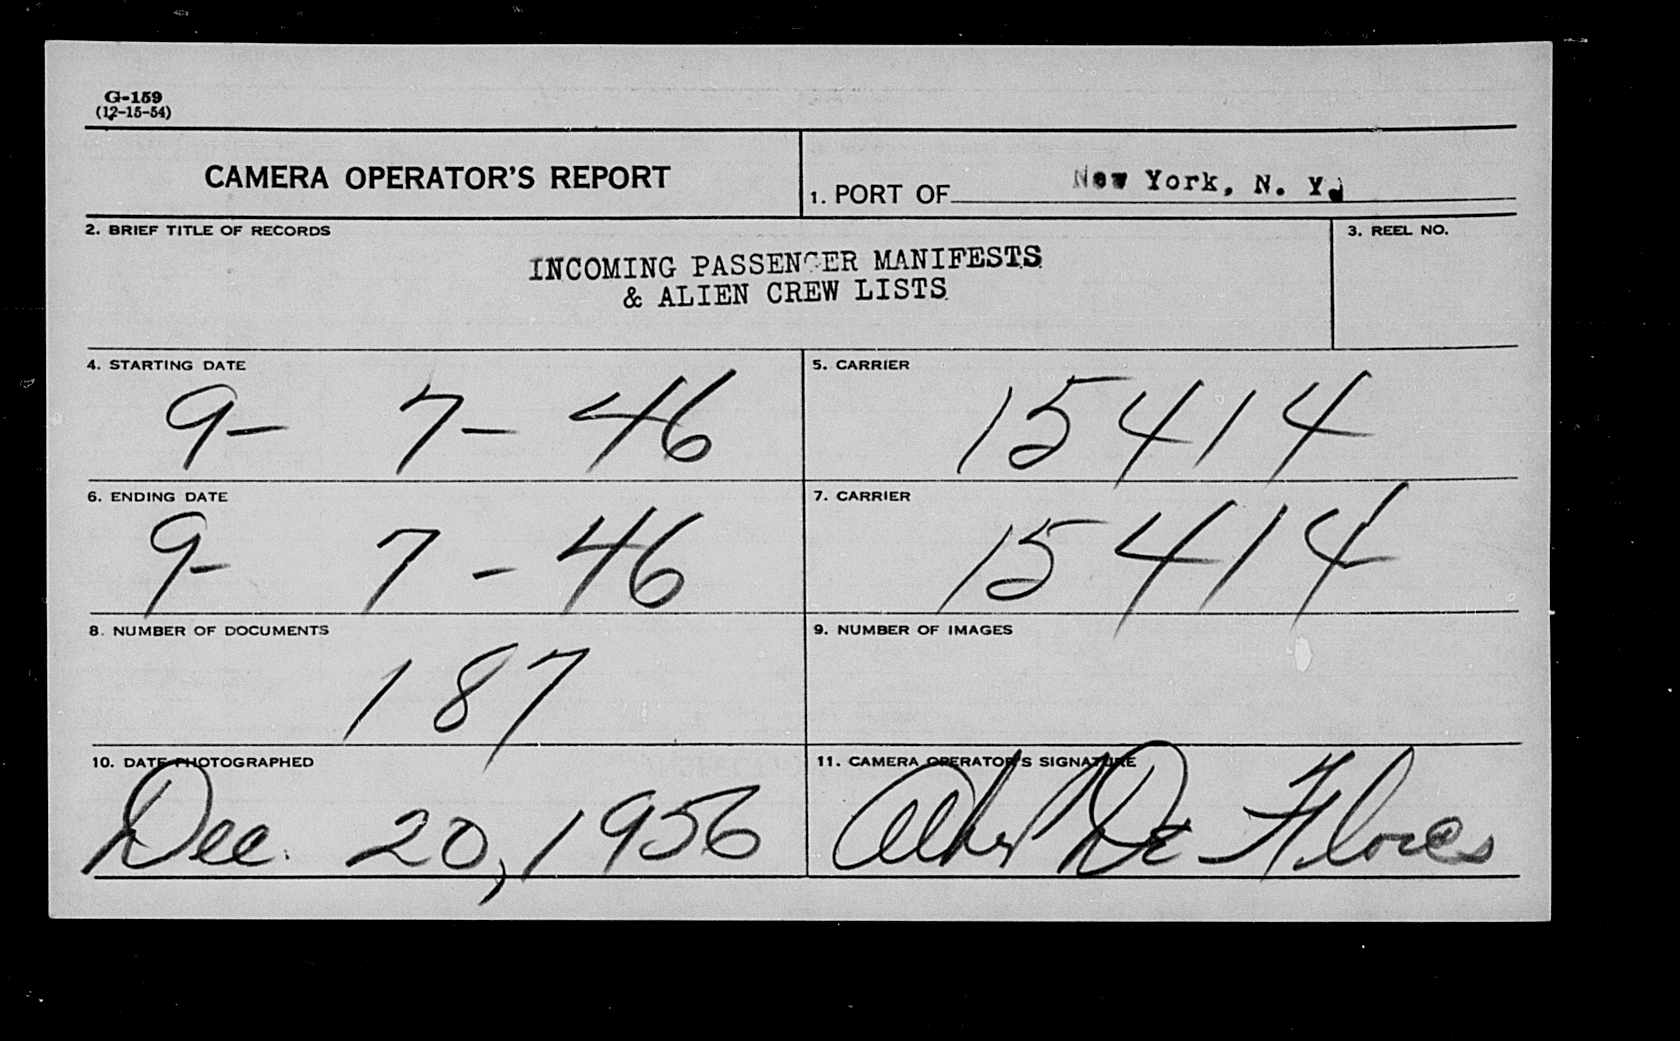 G-159
(12-15-54)
CAMERA OPERATOR'S REPORT
1. PORT OF New York, N. Y.
2. BRIEF TITLE OF RECORDS
INCOMING PASSENGER MANIFESTS
& ALIEN CREW LISTS
3. REEL NO.
4. STARTING DATE
9- 7- 46
5. CARRIER
15414
6. ENDING DATE
9- 7 - 46
7. CARRIER
15414
8. NUMBER OF DOCUMENTS
187
9. NUMBER OF IMAGES
10. DATE PHOTOGRAPHED
Dec. 20, 1956
11. CAMERA OPERATOR'S SIGNATURE
De Flores